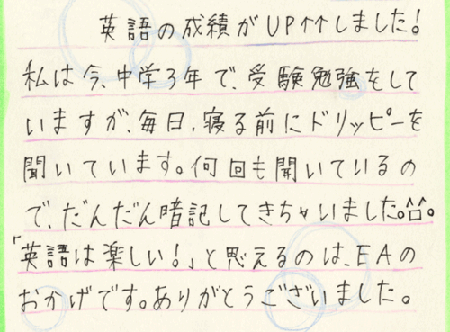 英語の成績がUP↑↑しました!
私は今、中学3年で、受験勉強をして
いますが、毎日、寝る前にドリッピーを
聞いています。何回も聞いているの
で、だんだん暗記してきちゃいました。^^。
「英語は楽しい!」と思えるのは、EAの
おかげです。ありがとうございました。